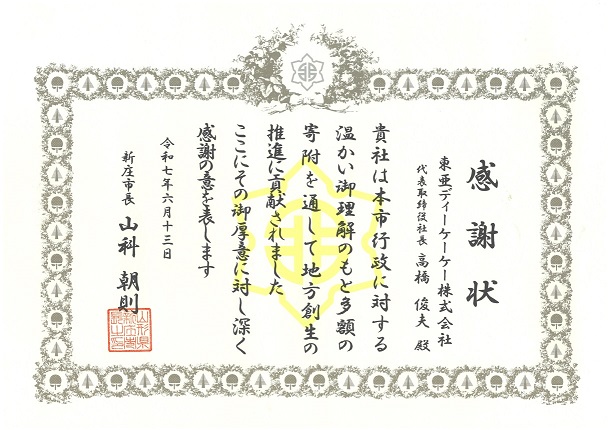 感謝状
東亜ディーケーケー株式会社
代表取締役社長 高橋俊夫 殿
貴社は本市行政に対する
温かい御理解のもと多額の
寄附を通して地方創生の
推進に貢献されました
ここにその御厚意に対し深く
感謝の意を表します
令和七年六月十三日
新庄市長 山科朝則